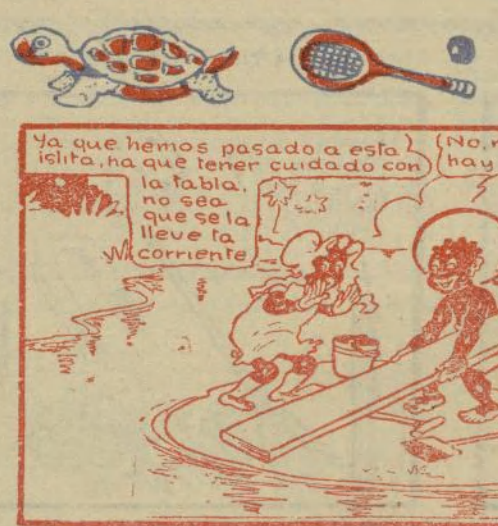 Ya que hemos pasado a esta
islita, ha que tener cuidado con
la tabla,
no sea
que se la
lleve ta
corriente
(No,
hay